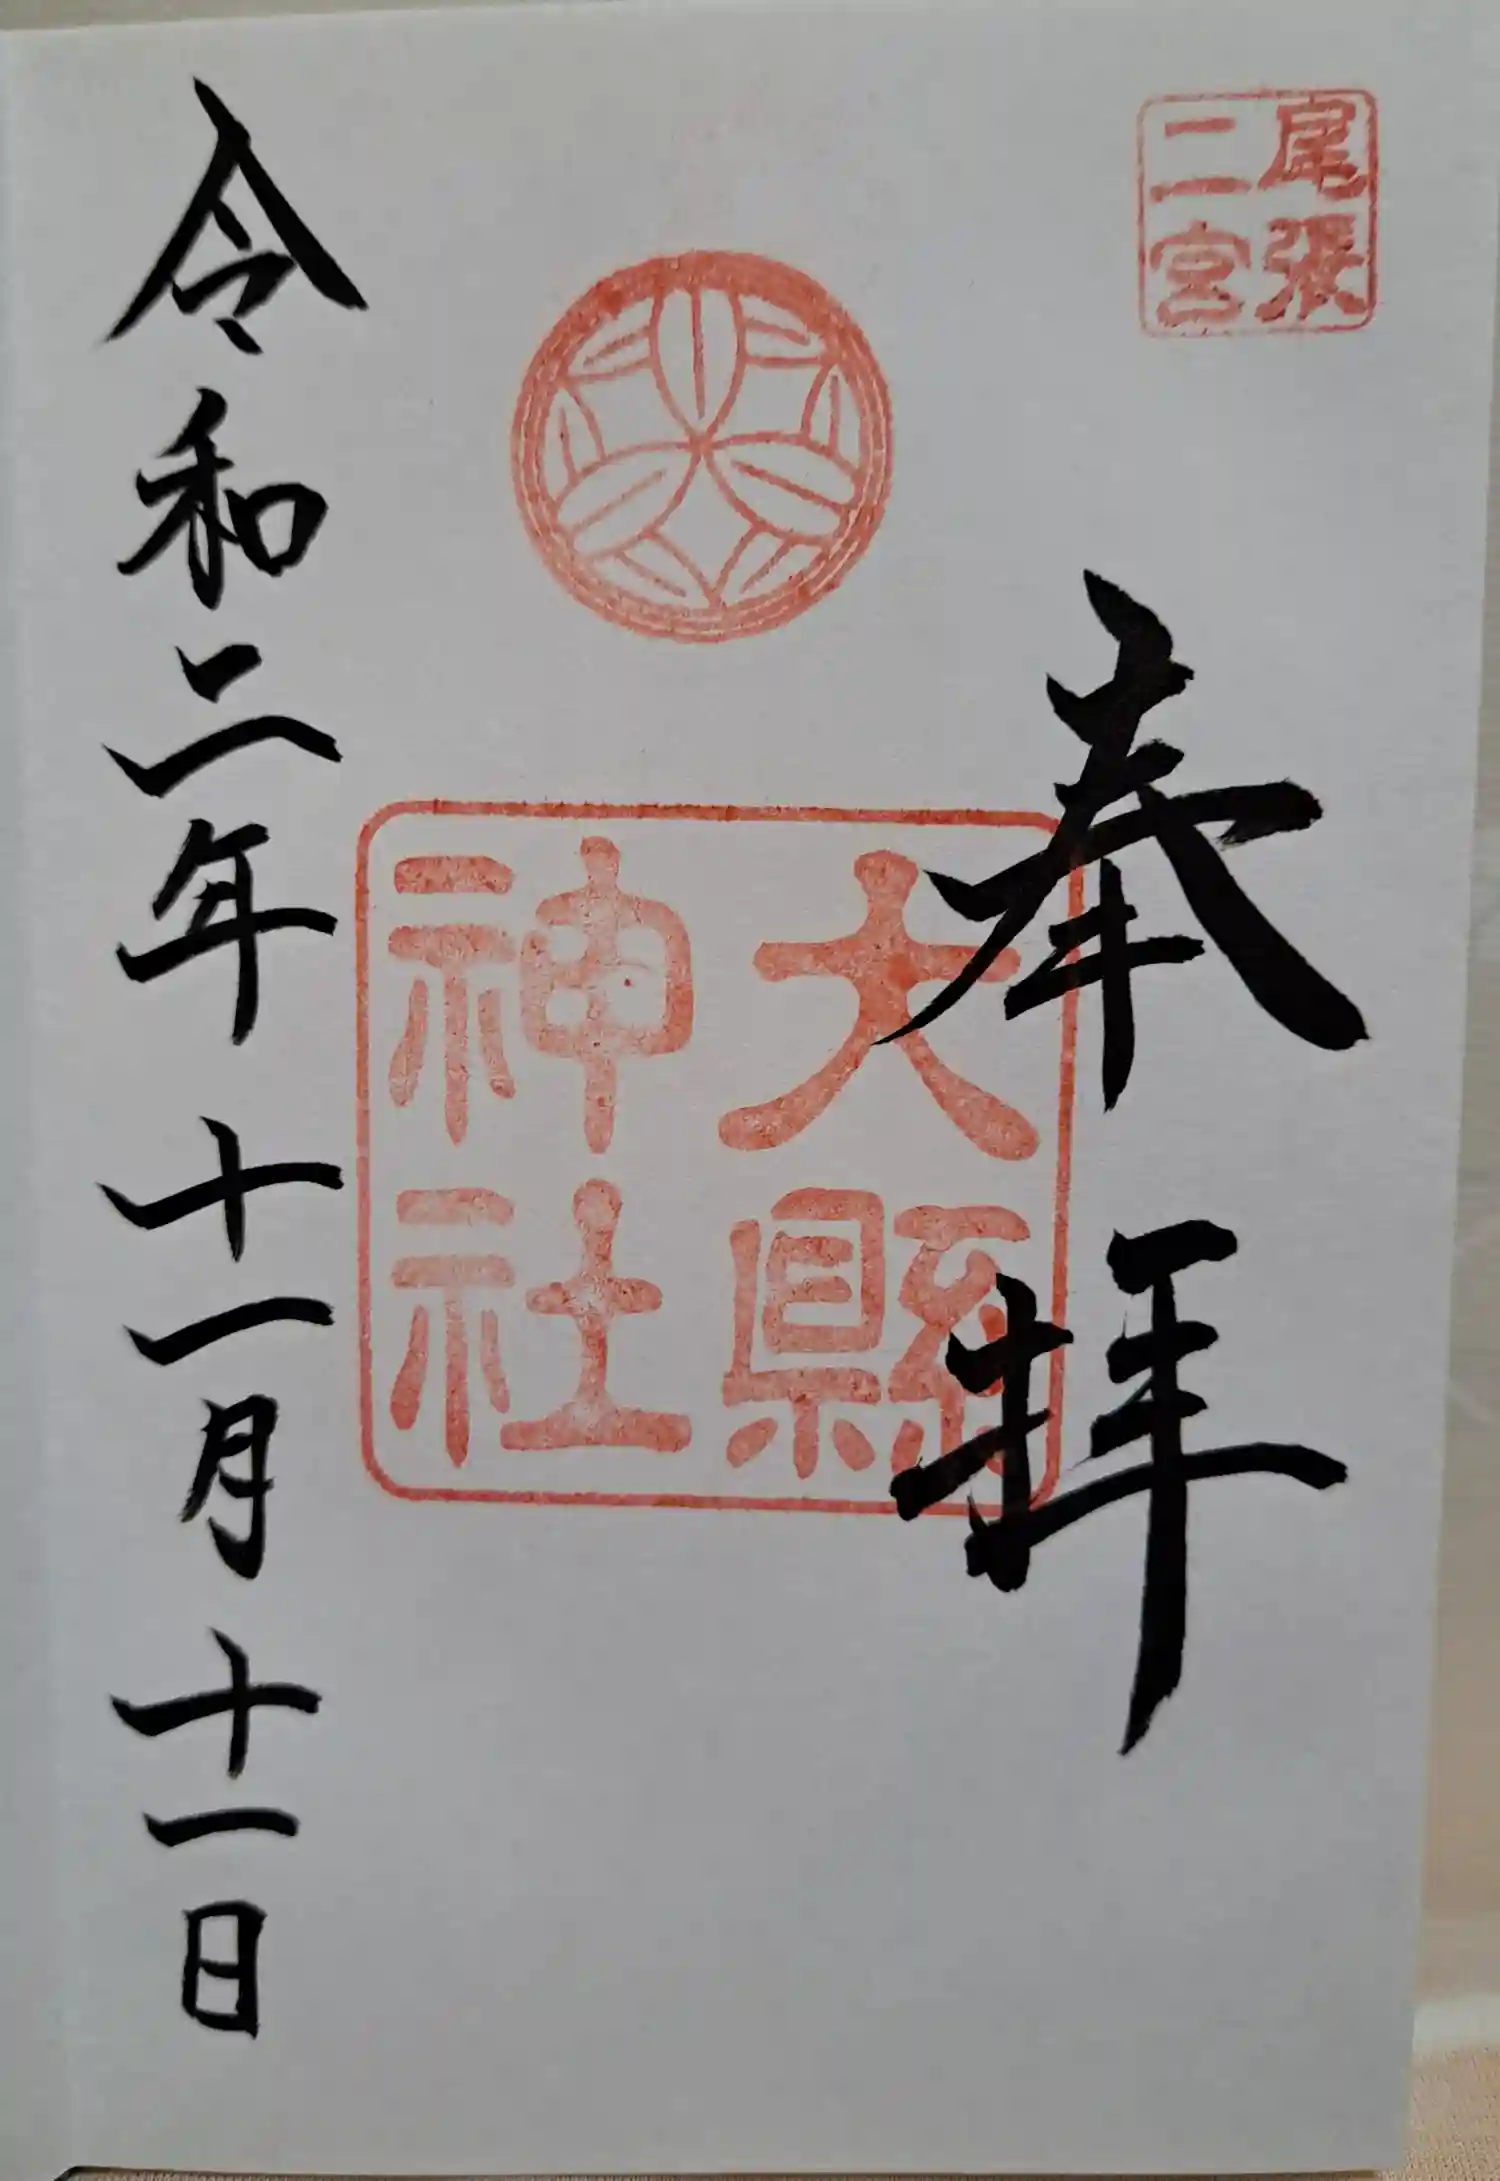 尾張
二宮
奉拝
大縣
神社
令和二年十一月十一日